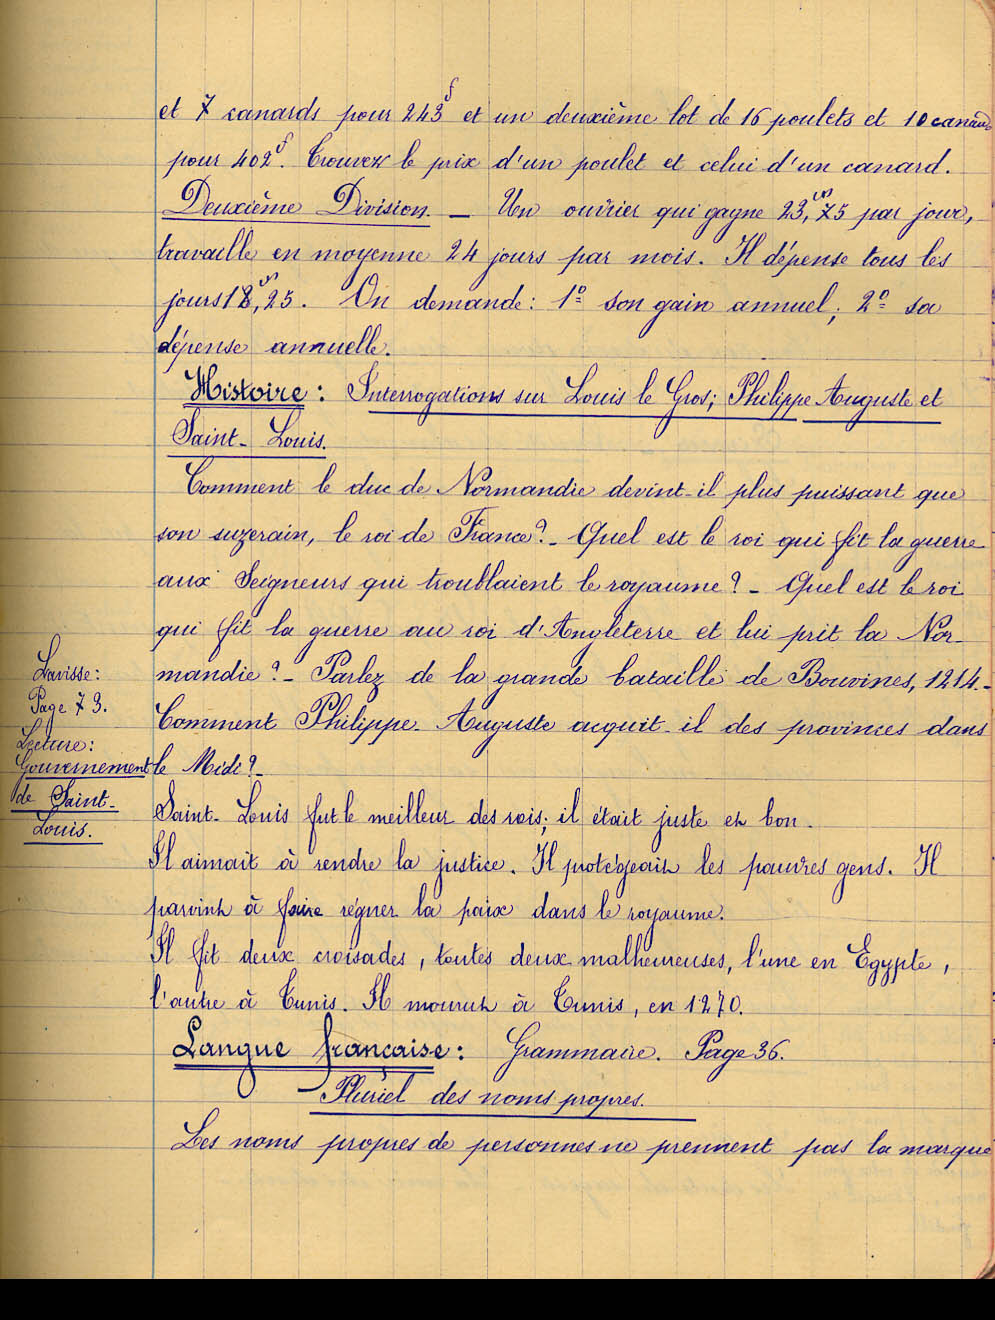 et 7 canards pour 243f et un deuxième lot de 16 poulets et 10 canards
pour 402f. Trouvez le prix d'un poulet et celui d'un canard.
Deuxième Division. _ Un ouvrier qui gagne 23,75 par jour,
travaille en moyenne 24 jours par mois. Il dépense tous les
jours 18,25. On demande : 1º son gain annuel ; 2º sa
dépense annuelle.
Histoire : Interrogations sur Louis le Gros ; Philippe Auguste et
Saint-Louis.
Comment le duc de Normandie devint-il plus puissant que
son suzerain, le roi de France ? _ Quel est le roi qui fit la guerre
aux Seigneurs qui troublaient le royaume ? _ Quel est le roi
qui fit la guerre au roi d'Angleterre et lui prit la Nor-
mandie ? _ Parlez de la grande bataille de Bouvines, 1214. _
Comment Philippe-Auguste acquit-il des provinces dans
le Midi ? _
Lavisse :
Page 73.
Lecture :
Gouvernement
de Saint-
Louis.
Saint-Louis fut le meilleur des rois ; il était juste et bon.
Il aimait à rendre la justice. Il protégeait les pauvres gens. Il
parvint à faire régner la paix dans le royaume.
Il fit deux croisades, toutes deux malheureuses, l'une en Egypte,
l'autre à Tunis. Il mourut à Tunis, en 1270.
Langue française : Grammaire. Page 36.
Pluriel des noms propres.
Les noms propres de personnes ne prennent pas la marque